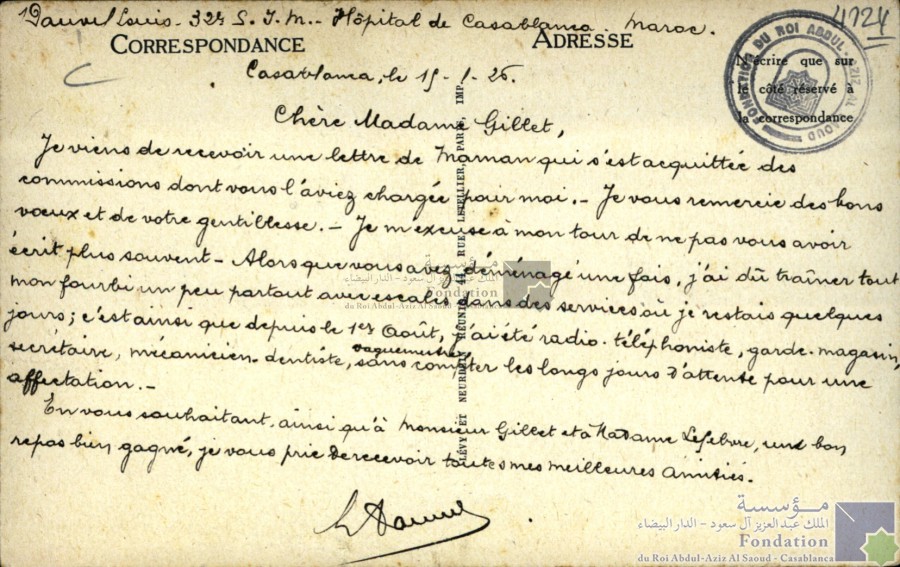 Dauvel Louis - 32e S.I.M. - Hôpital de Casablanca. Maroc.
4124
CORRESPONDANCE
ADRESSE
N'écrire que sur
le côté réservé à
la correspondance
FONDATION DU ROI ABDUL-AZIZ AL SAOUD
Casablanca, le 15-1-26.
Chère Madame Gillet,
Je viens de recevoir une lettre de Maman qui s'est acquittée des
commissions dont vous l'aviez chargée pour moi. - Je vous remercie des bons
vœux et de votre gentillesse. - Je m'excuse à mon tour de ne pas vous avoir
écrit plus souvent - Alors que vous avez déménagé une fois, j'ai dû traîner tout
mon fourbi un peu partout avec escales dans des services où je restais quelques
jours; c'est ainsi que depuis le 1er Août, j'ai été radio-téléphoniste, garde-magasin,
secrétaire, mécanicien-dentiste, vaguemestre, sans compter les longs jours d'attente pour une
affectation. -
En vous souhaitant, ainsi qu'à Monsieur Gillet et à Madame Lefebvre, un bon
repos bien gagné, je vous prie de recevoir toutes mes meilleures amitiés.
LÉVY ET NEURDEIN RÉUNIS, 44, RUE LETELLIER, PARIS, IMP.
مؤسسة
الملك عبد العزيز آل سعود - الدار البيضاء
Fondation
du Roi Abdul-Aziz Al Saoud - Casablanca
مؤسسة
الملك عبد العزيز آل سعود - الدار البيضاء
Fondation
du Roi Abdul-Aziz Al Saoud - Casablanca